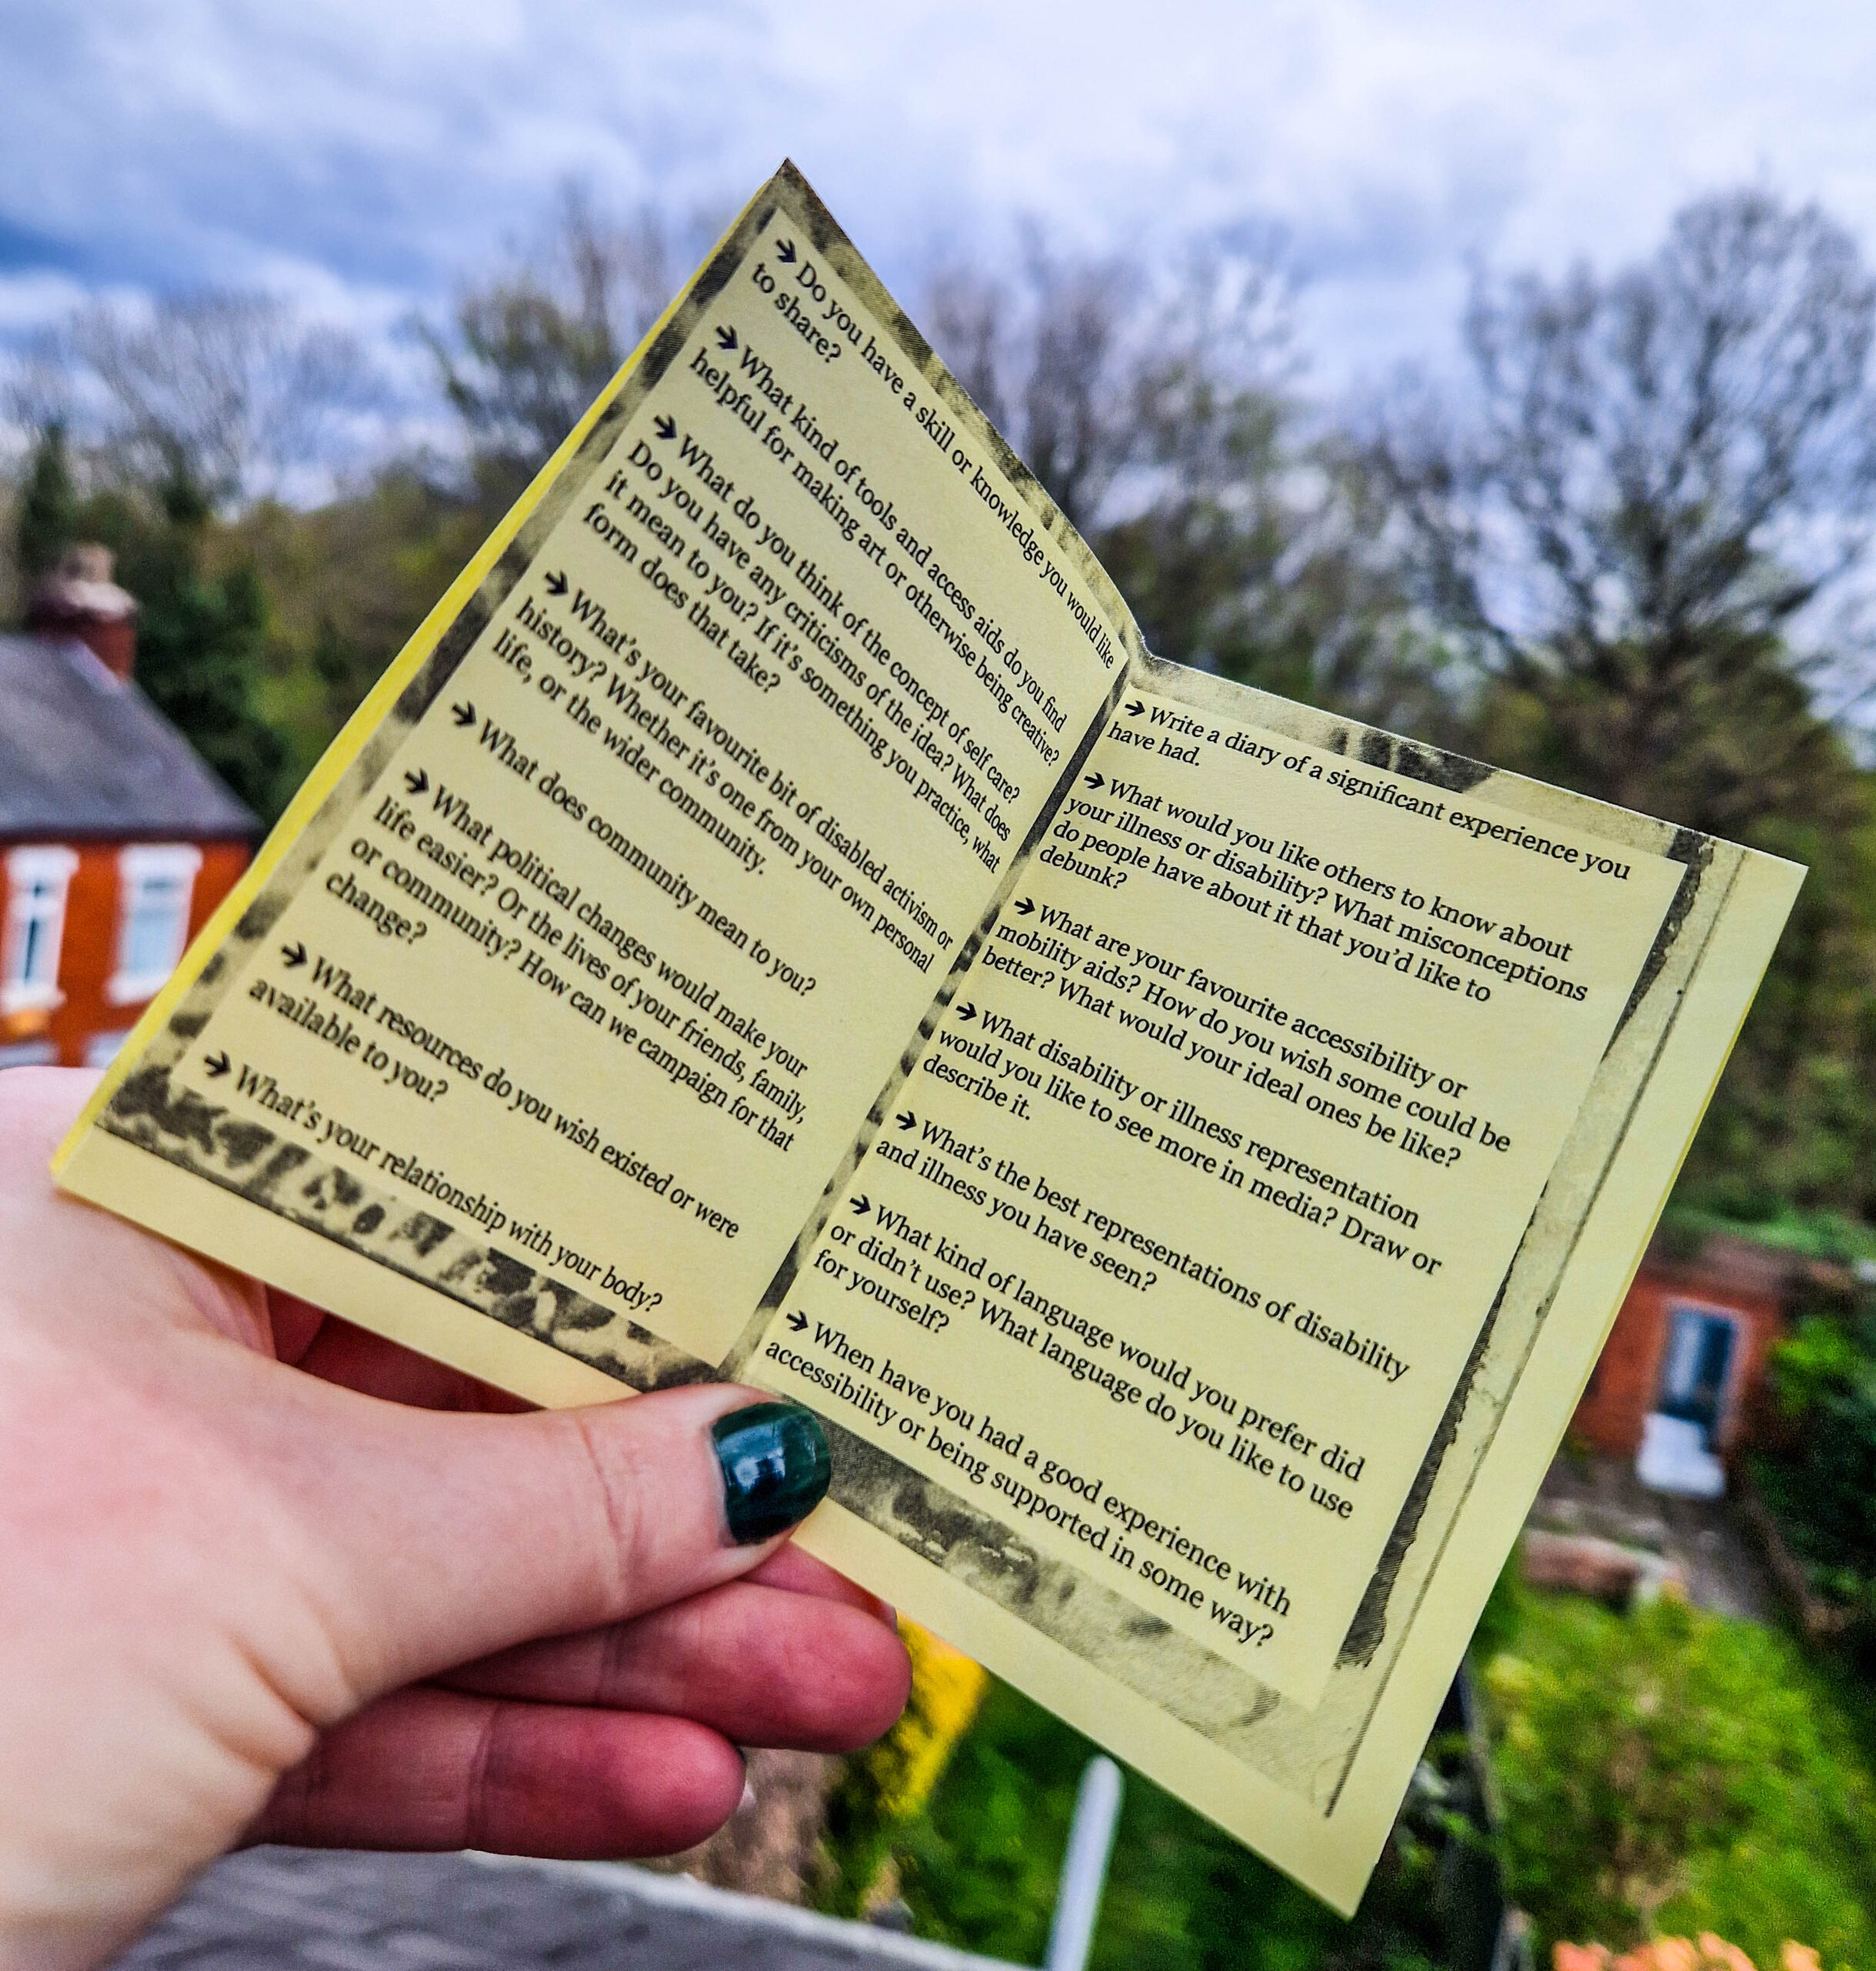 → Do you have a skill or knowledge you would like
to share?
→ What kind of tools and access aids do you find
helpful for making art or otherwise being creative?
→ What do you think of the concept of self care?
Do you have any criticisms of the idea? What does
it mean to you? If it's something you practice, what
form does that take?
→ What's your favourite bit of disabled activism or
history? Whether it's one from your own personal
life, or the wider community.
→ What does community mean to you?
→ What political changes would make your
life easier? Or the lives of your friends, family,
or community? How can we campaign for that
change?
→ What resources do you wish existed or were
available to you?
→ What's your relationship with your body?
→ Write a diary of a significant experience you
have had.
→ What would you like others to know about
your illness or disability? What misconceptions
do people have about it that you'd like to
debunk?
→ What are your favourite accessibility or
mobility aids? How do you wish some could be
better? What would your ideal ones be like?
→ What disability or illness representation
would you like to see more in media? Draw or
describe it.
→ What's the best representations of disability
and illness you have seen?
→ What kind of language would you prefer did
or didn't use? What language do you like to use
for yourself?
→ When have you had a good experience with
accessibility or being supported in some way?